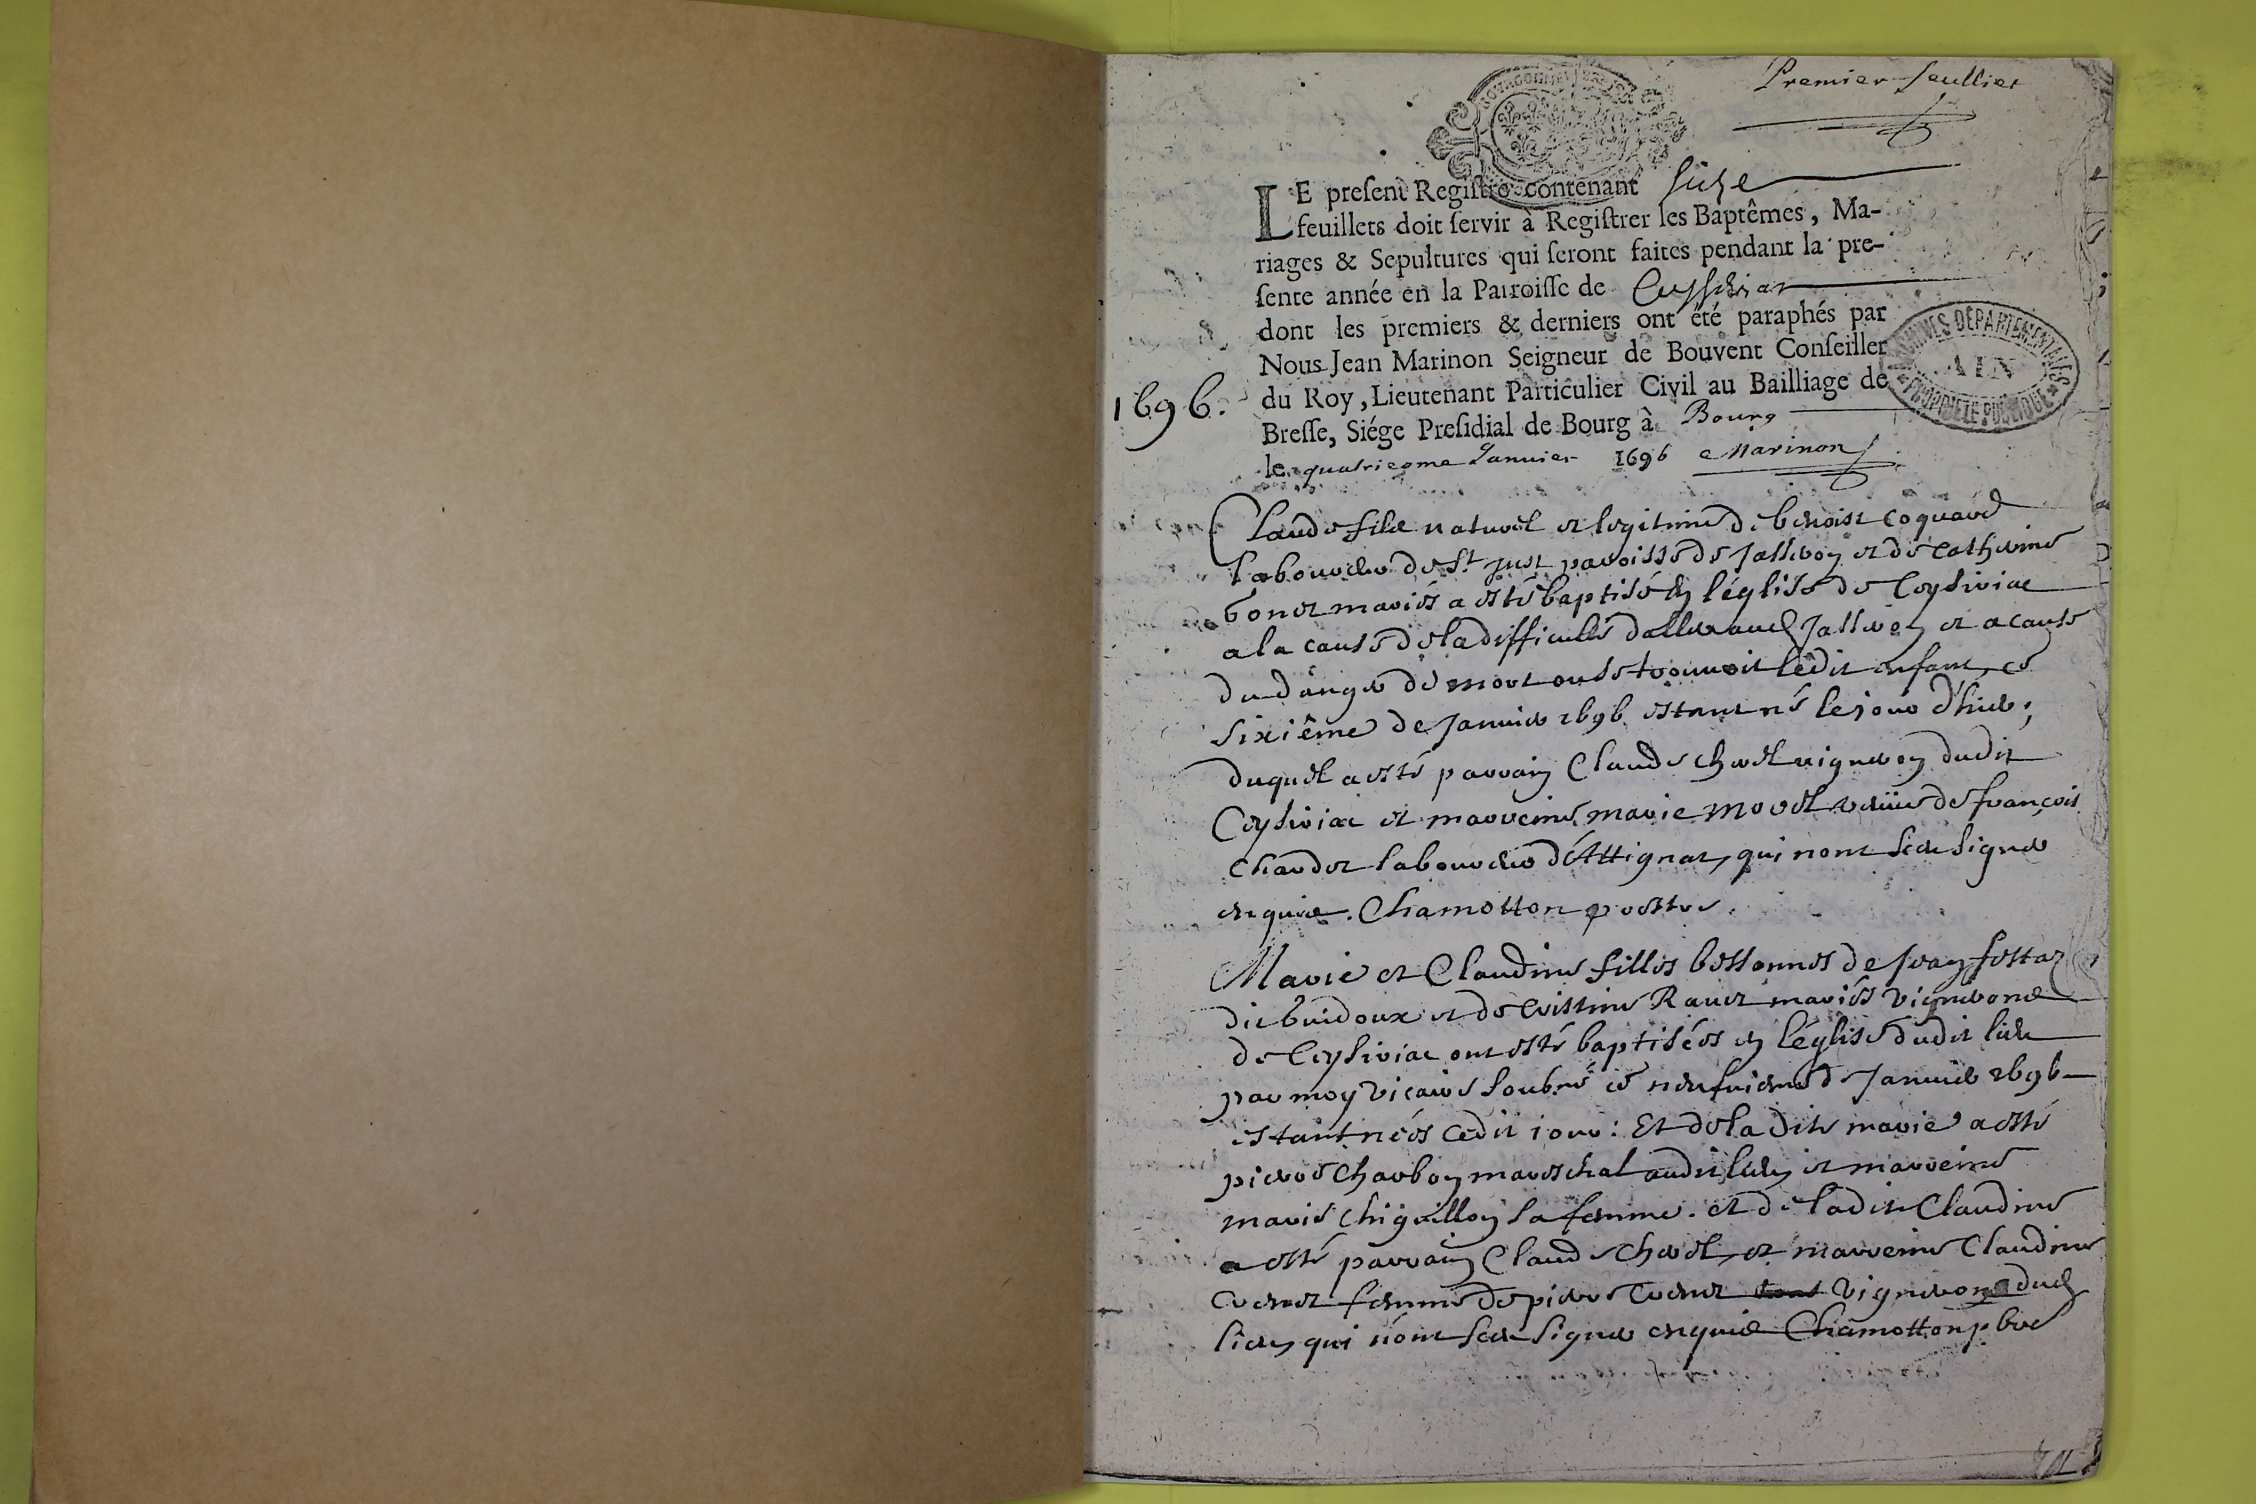 Premier feulliet
LE preſent Regiſtre contenant ſeize
feuillets doit ſervir à Regiſtrer les Baptêmes, Ma-
riages & Sepultures qui ſeront faites pendant la pre-
ſente année en la Parroiſſe de Ceyſeiriat
dont les premiers & derniers ont été paraphés par
Nous Jean Marinon Seigneur de Bouvent Conſeiller
du Roy, Lieutenant Particulier Civil au Bailliage de
Breſſe, Siége Preſidial de Bourg à Bourg
le quatrieeme Januier 1696 Marinon
ARCHIVES DÉPARTEMENTALES
AIN
PROPRIÉTÉ PUBLIQUE
1696.
Claude fils naturel et legitime de benoist Coquard
laboureur de St Just paroisse de Jasseron et de Catherine
bonet mariés a esté baptisé en l'église de Ceyseiriac
a la cause de la difficulté daller aud Jasseron et a cause
du danger de mort ou se trouvoit ledit enfant, ce
sixiême de Januier 1696 estant né le jour d'hier,
duquel a esté parrain Claude Chorel vigneron dudit
Ceyseiriac et marreine marie morel veüue de françois
Chardet laboureur d'Attignat, qui n'ont sceu signer
enquis. Chamotton prestre.
Marie et Claudine filles bessonnes de Jean
dit et de Cristine Ravet mariés vignerons
de Ceyseiriac ont esté baptisées en l'église dudit lieu
par moy vicaire soubné ce neufuieme de Januier 1696
estant nées cedit jour : Et de la dite marie a esté
pierre Charbon mareschal audit lieu, et marreine
marie Chiguillon sa femme. et de ladite Claudine
a esté parrain Claude Chorel, et marreine Claudine
Cuenet femme de pierre vignerons dud
lieu, qui n'ont sceu signer enquis Chamotton pbre